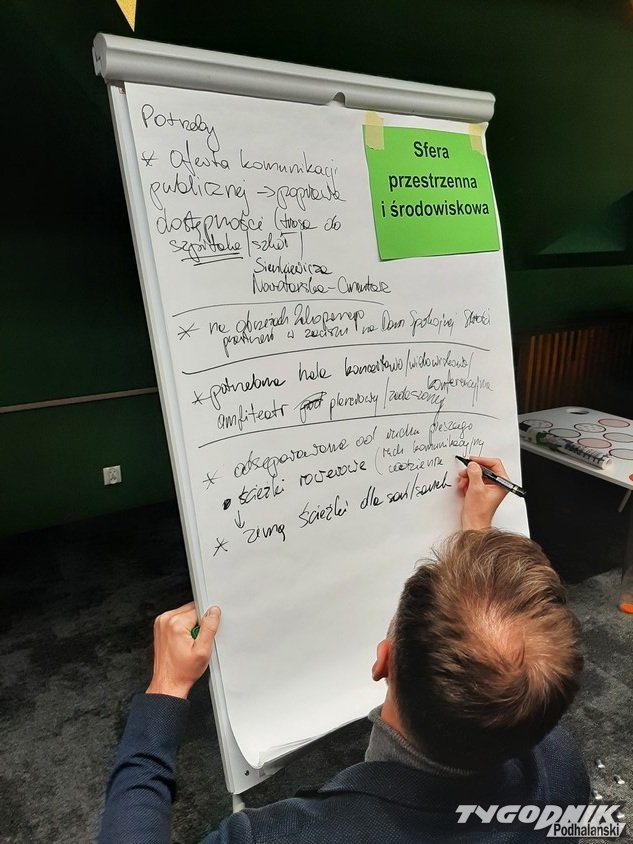 Potrzeby
Sfera
przestrzenna
i środowiskowa
* oferta komunikacji
publicznej → poprawa
dostępności (trasa do
szpitala/szkół)
Sienkiewicza
Nowotarska-Cmentarz
* na obrzeżach Zakopanego
w zaciszu na Dom Spokojnej Starości
* potrzebna hala koncertowo/widowiskowo/
konferencyjna
amfiteatr plenerowy/zadaszony
* odseparowane od ruchu pieszego
• ścieżki rowerowe (ruch komunikacyjny
codzienny
↓
* zimą ścieżki dla sań/sanek
TYGODNIK
Podhalański